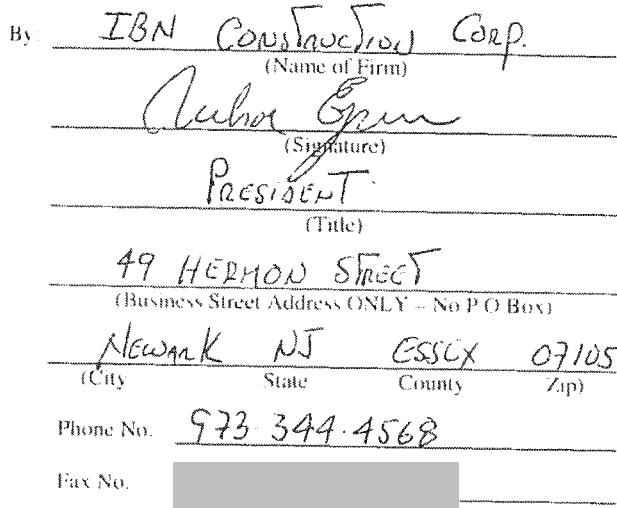 By: IBN CONSTRUCTION CORP.
(Name of Firm)
(Signature)
PRESIDENT
(Title)
49 HERMON STREET
(Business Street Address ONLY – No P O Box)
NEWARK NJ ESSEX 07105
(City State County Zip)
Phone No. 973-344-4568
Fax No.